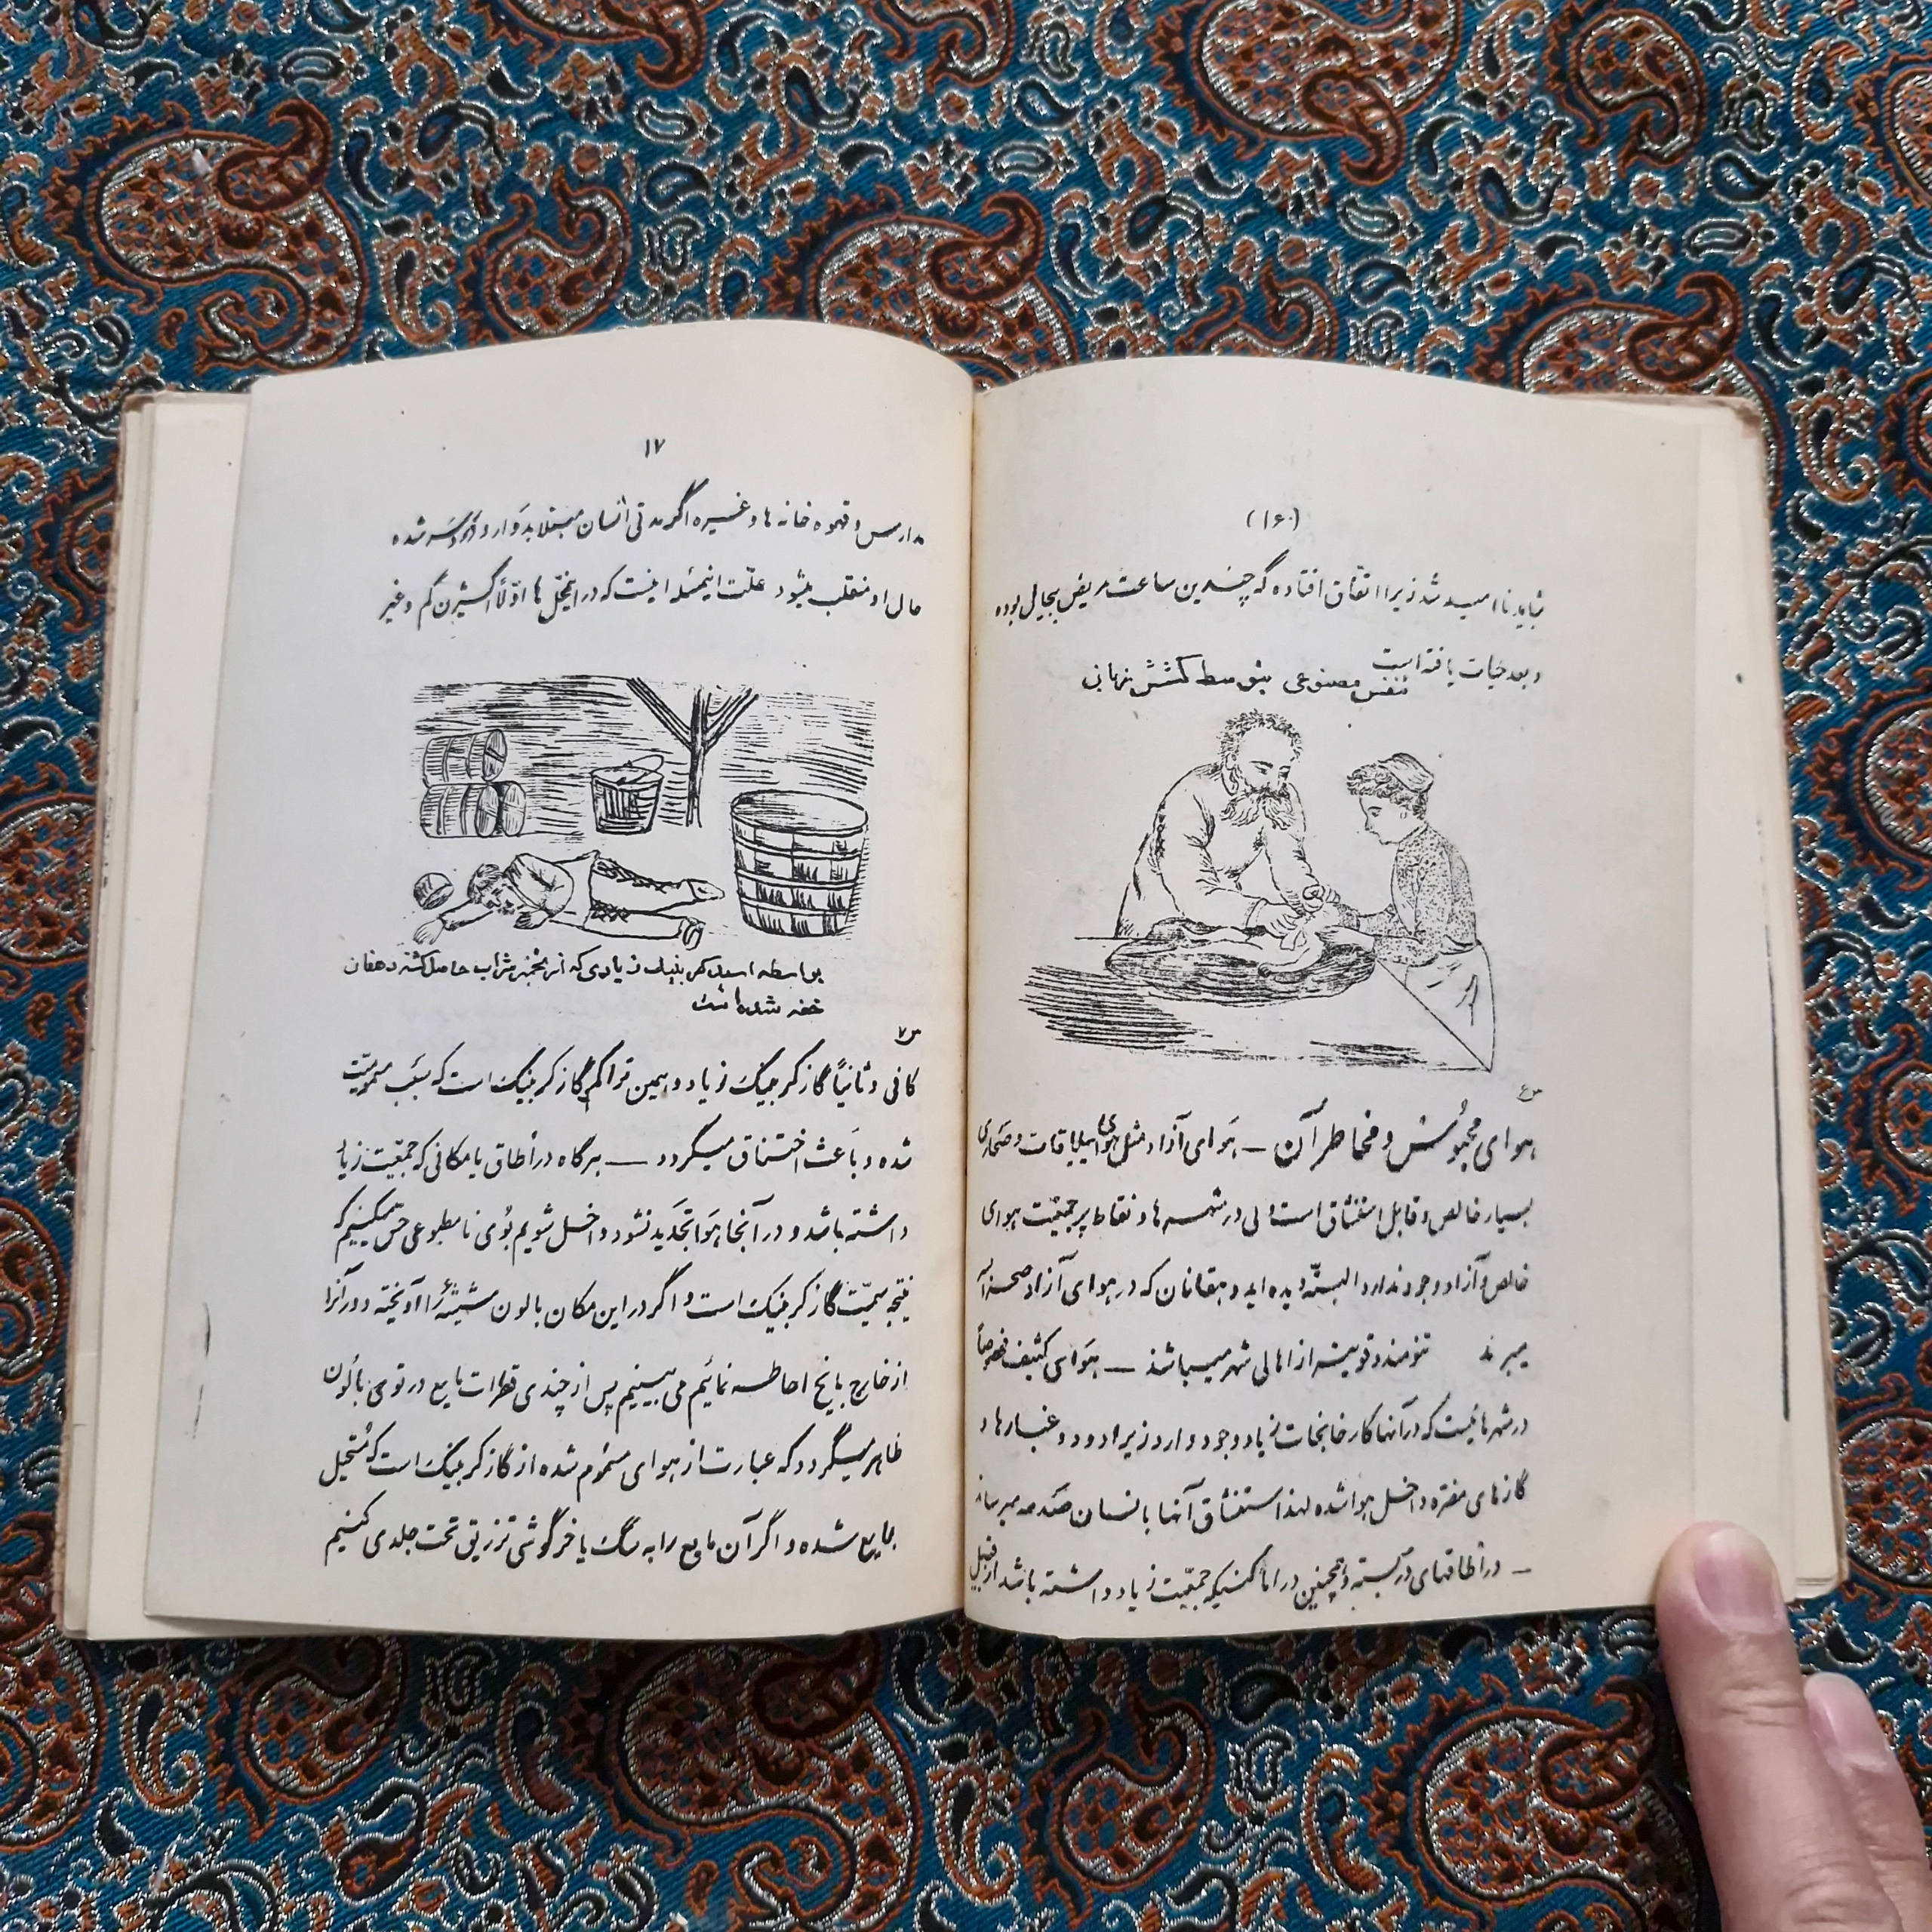 (۱۶)
نباید ناامید شد زیرا اتفاق افتاده که چندین ساعت مریض بیحال بوده
و بعد حیات یافته است
تنفس مصنوعی بتوسط کشش زبانی
هوای محبوس و مخاطر آن – هوای آزاد مثل هوای ییلاقات و صحاری
بسیار خالص و قابل استنشاق است ولی در شهرها و نقاط پر جمعیت هوای
خالص و آزاد وجود ندارد البته دیده اید دهقانان که در هوای آزاد صحرا بسر
میبرند تنومند و قوی‌تر از اهالی شهر میباشند – هوای کثیف خصوصاً
در شهرهائیست که در آنها کارخانجات زیاد وجود دارد زیرا دود و غبارها و
گازهای مضره داخل هوا شده لهذا استنشاق آنها بانسان صدمه میرساند
– در اطاقهای در بسته و همچنین در اماکنیکه جمعیت زیاد داشته باشد از قبیل
۱۷
مدارس و قهوه خانه ها و غیره اگر مدتی انسان مبتلا بدوار و شده
حال او منقلب میشود علت اینمسئله اینست که در این محل ها اولاً اکسیژن کم و غیر
بواسطه اسید کربنیک زیادی که از تخمیر شراب حاصل گشته دهقان
خفه شده است
کافی و ثانیاً گاز کربنیک زیاد و همین تراکم گاز کربنیک است که سبب مسمومیت
شده و باعث اختناق میگردد – هرگاه در اطاق یا مکانی که جمعیت زیاد
داشته باشد و در آنجا هوا تجدید نشود داخل شویم بوی نامطبوعی حس میکنیم که
نتیجه سمیت گاز کربنیک است و اگر در این مکان بالون شیشهٔ را آویخته و دور آنرا
از خارج با یخ احاطه نمائیم می بینیم پس از چندی قطرات مایع در توی بالون
ظاهر میگردد که عبارت از هوای مسموم شده از گاز کربنیک است که مستحیل
بمایع شده و اگر آن مایع را به سگ یا خرگوشی تزریق تحت جلدی کنیم